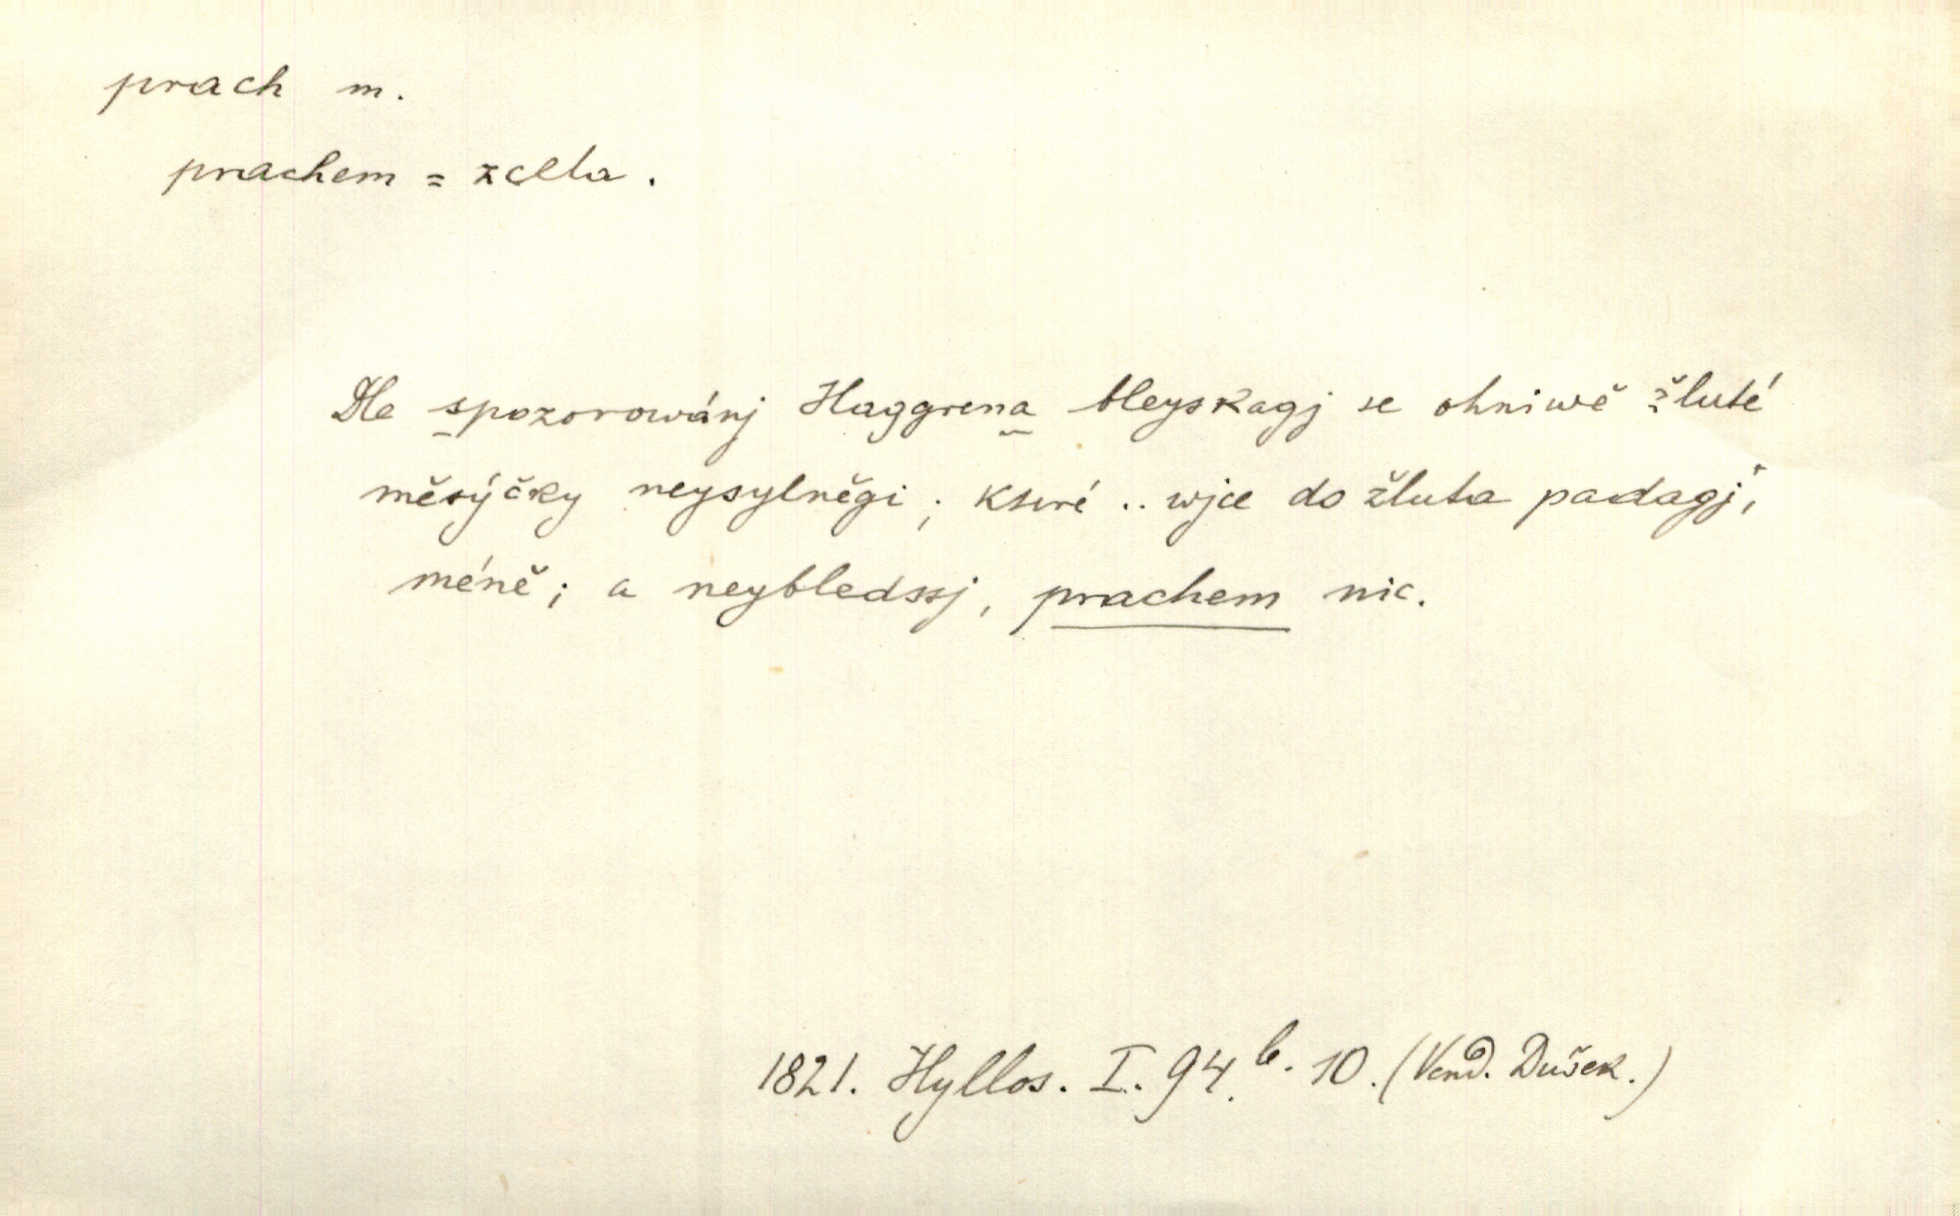 prach m.
prachem = zcela.
Dle spozorowánj Haggrena bleyskagj se ohniwě žluté
měsýčky neysylněgi; které .. wjce do žluta padagj,
méně; a neybledssj, prachem nic.
1821. Hyllos. I. 94.b. 10. (Vend. Dušek.)